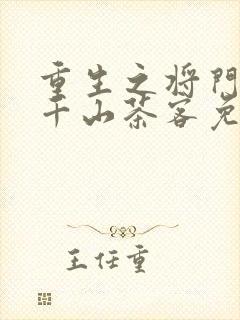 重生之将门
千山茶客免
王任重